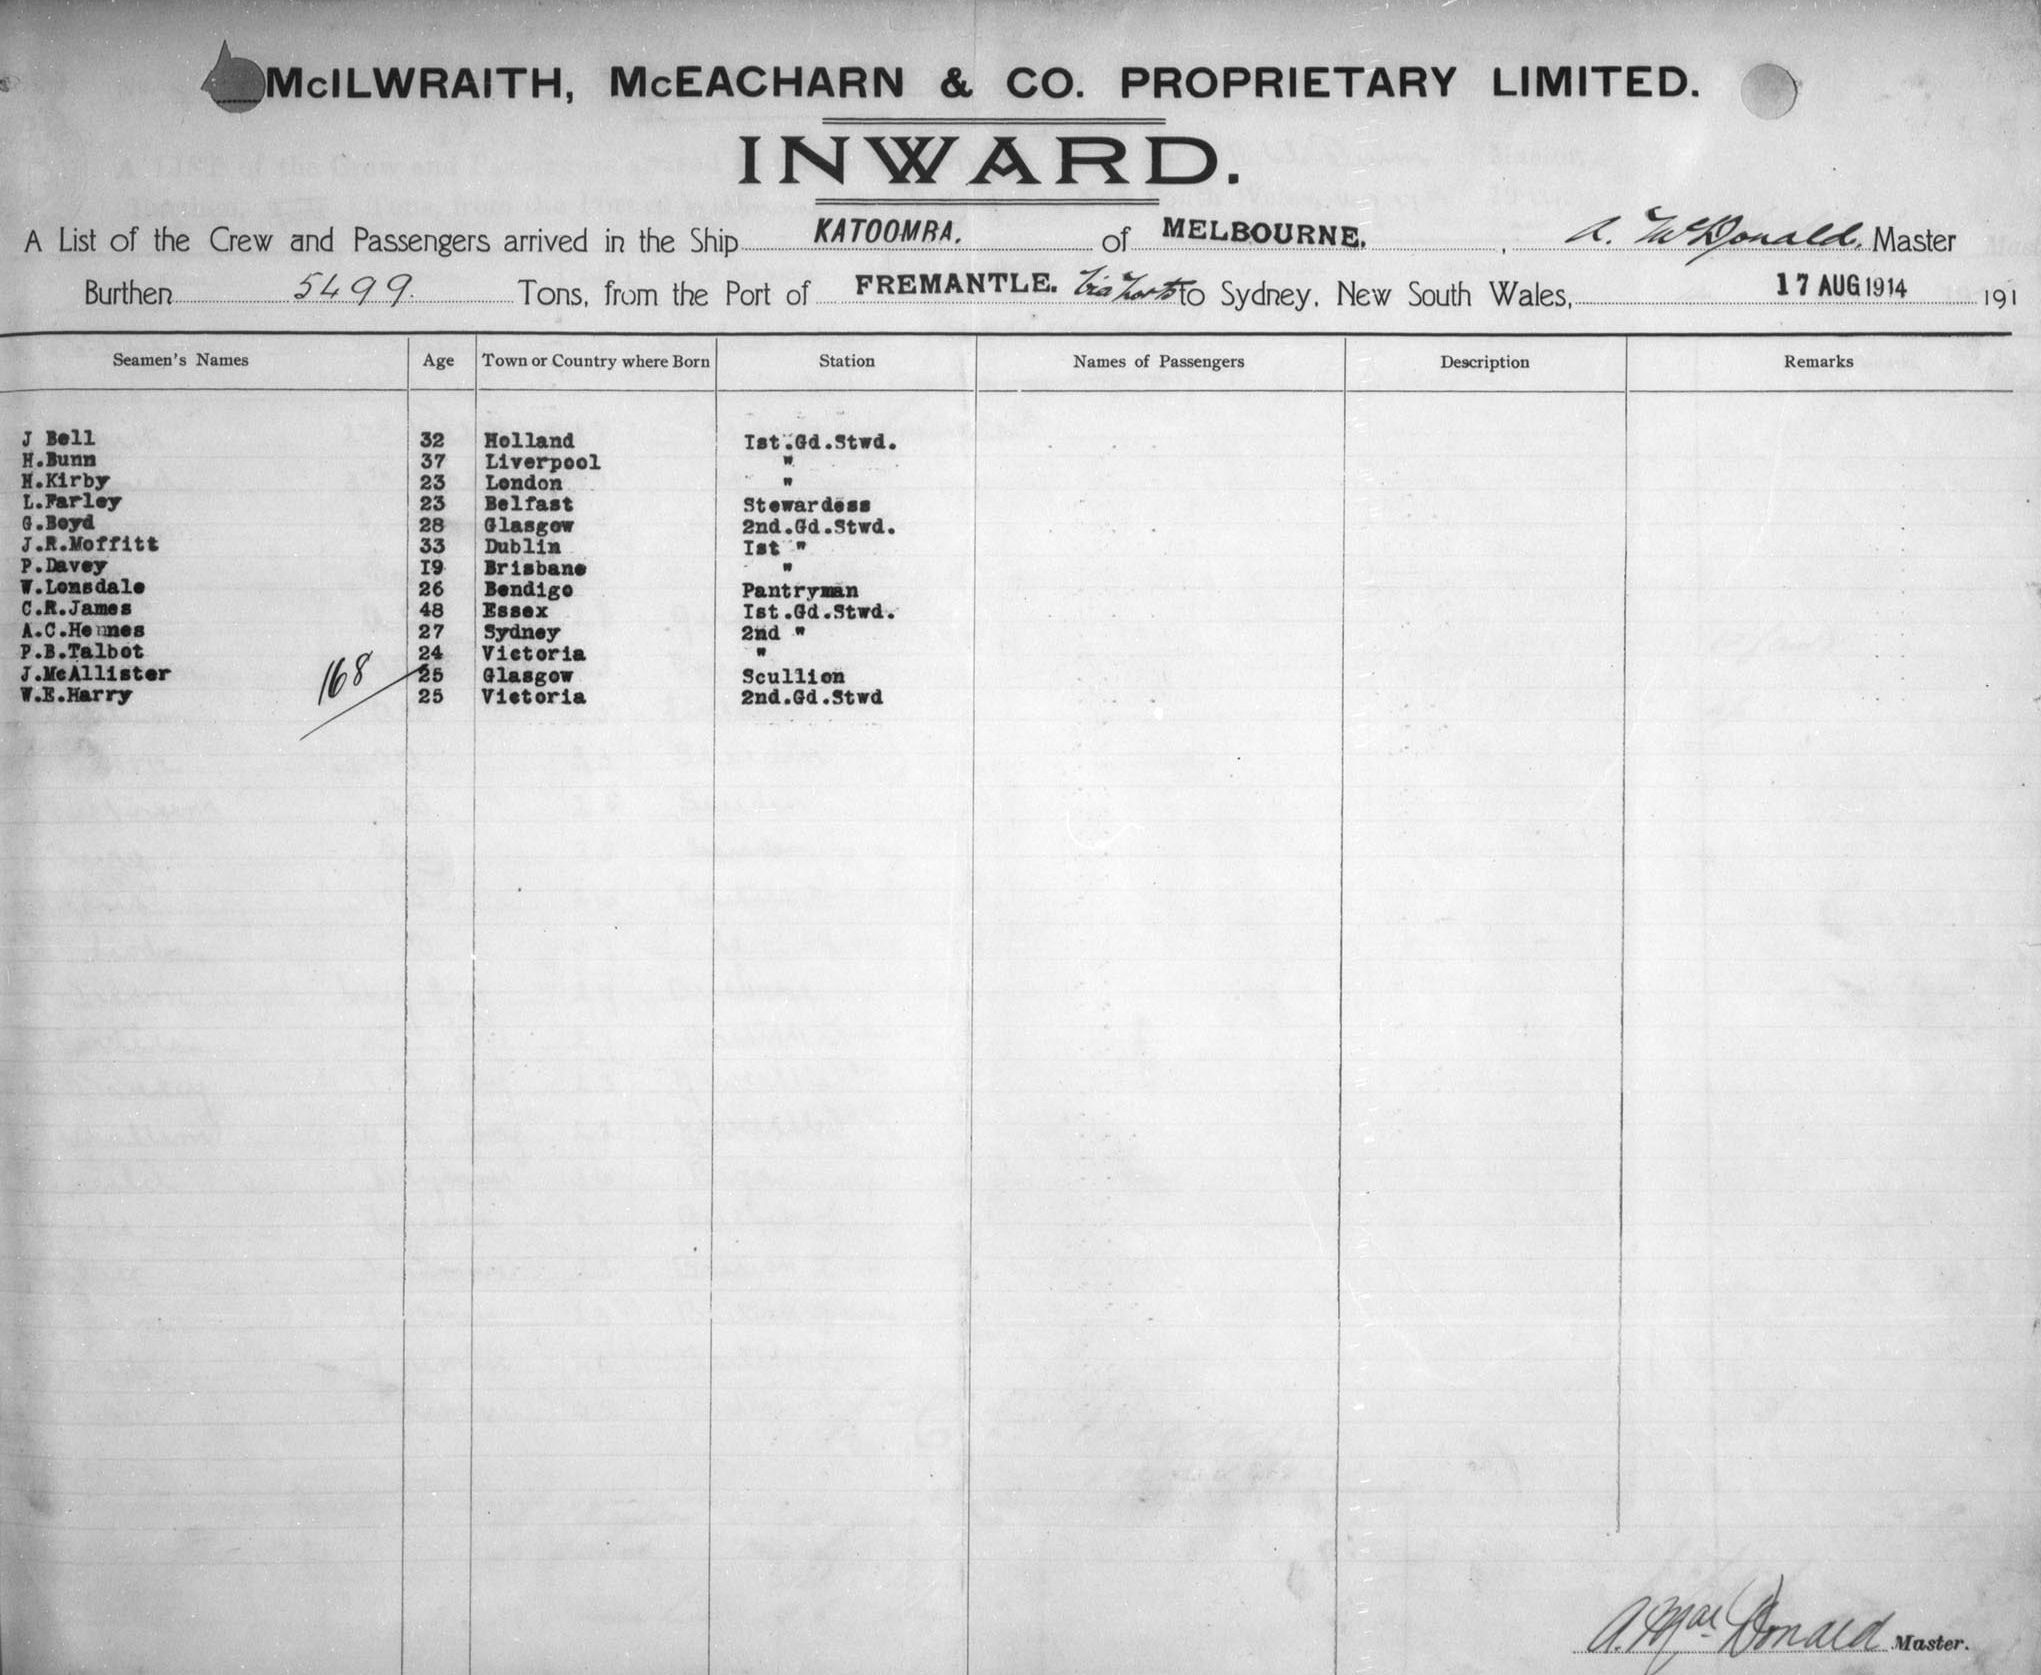 McILWRAITH, McEACHARN & CO. PROPRIETARY LIMITED.
INWARD.
A List of the Crew and Passengers arrived in the Ship KATOOMBA. of MELBOURNE. , A. McDonald. Master
Burthen 5499. Tons, from the Port of FREMANTLE. Via Ports to Sydney, New South Wales, 17 AUG 1914 191
Seamen's Names Age Town or Country where Born Station Names of Passengers Description Remarks
J Bell 32 Holland Ist.Gd.Stwd.
H.Bunn 37 Liverpool "
H.Kirby 23 London "
L.Farley 23 Belfast Stewardess
G.Boyd 28 Glasgow 2nd.Gd.Stwd.
J.R.Moffitt 33 Dublin Ist "
P.Davey I9 Brisbane "
W.Lonsdale 26 Bendigo Pantryman
C.R.James 48 Essex Ist.Gd.Stwd.
A.C.Hennes 27 Sydney 2nd "
P.B.Talbot 24 Victoria "
J.McAllister 168 25 Glasgow Scullion
W.E.Harry 25 Victoria 2nd.Gd.Stwd
A. MacDonald Master.